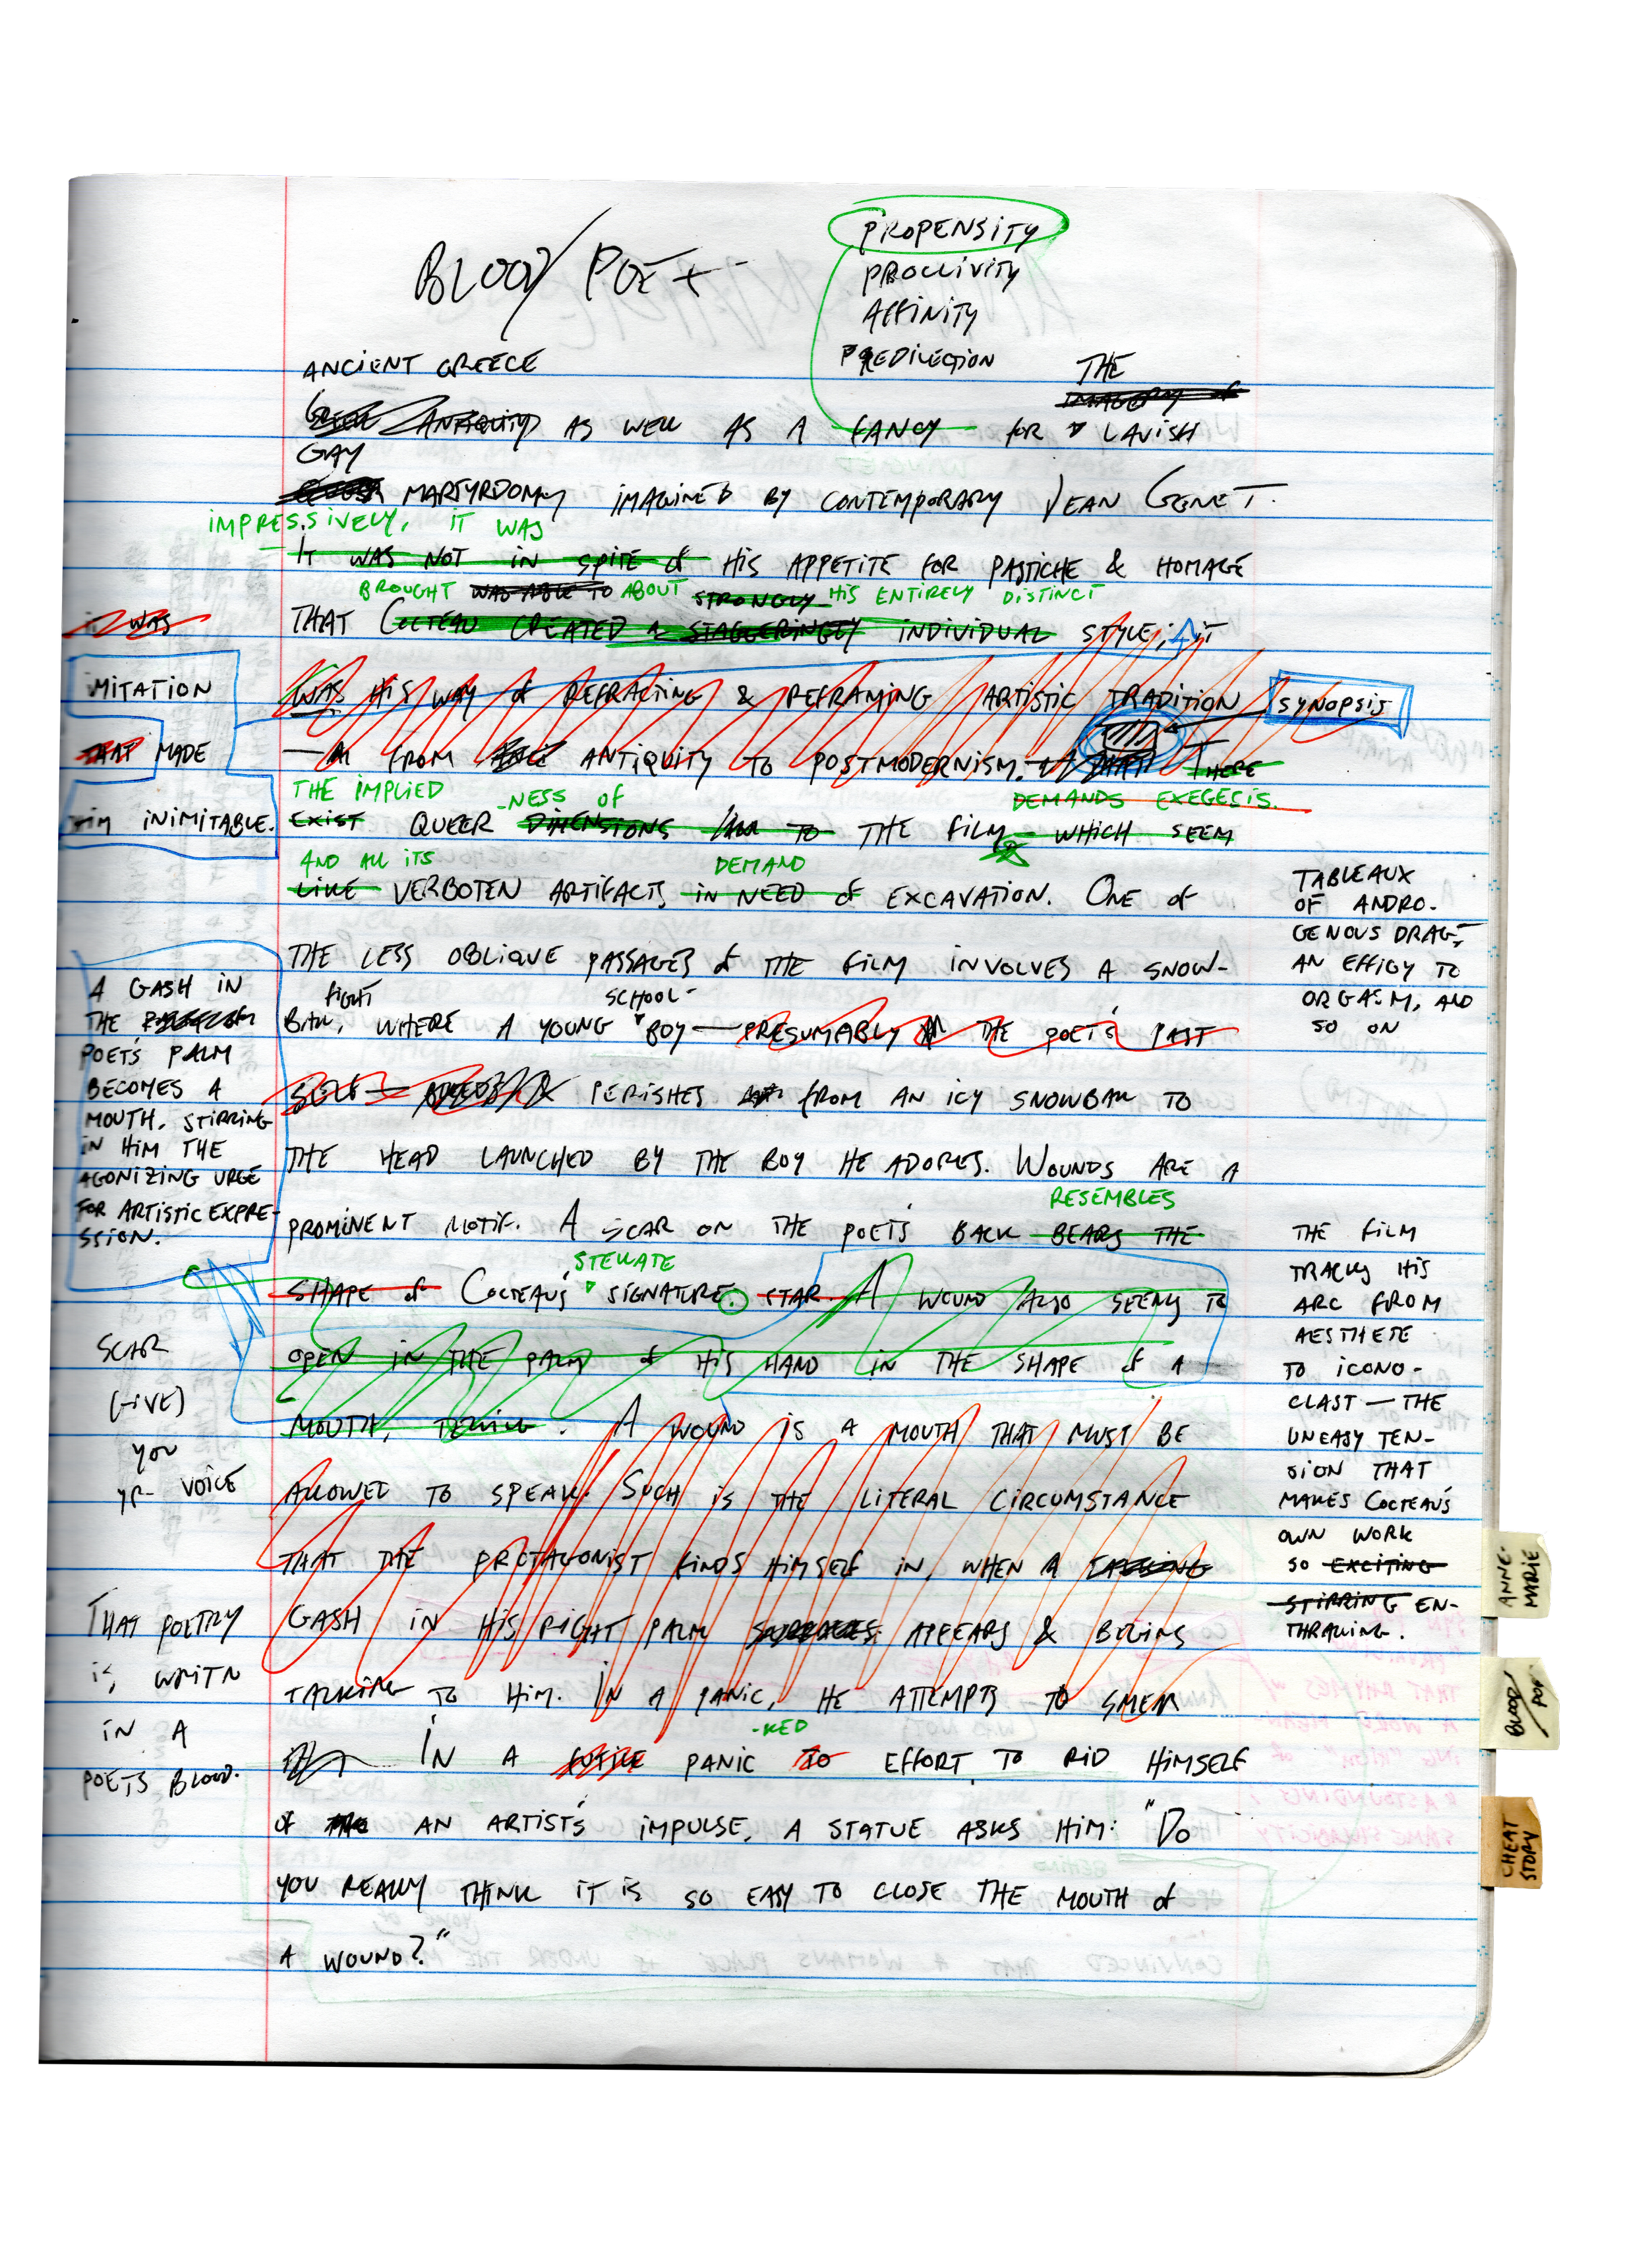 BLOOD/POET
PROPENSITY
PROCLIVITY
AFFINITY
PREDILECTION
THE
ANCIENT GREECE
IMAGERY of
GREEK ANTIQUITY AS WELL AS A FANCY FOR LAVISH
GAY
MARTYRDOM IMAGINED BY CONTEMPORARY JEAN GENET.
IMPRESSIVELY, IT WAS
IT WAS NOT IN SPITE of HIS APPETITE FOR PASTICHE & HOMAGE
BROUGHT WAS ABLE TO ABOUT STRONGLY HIS ENTIRELY DISTINCT
THAT COCTEAU CREATED A STAGGERINGLY INDIVIDUAL STYLE; IT
WAS HIS WAY of REFRACTING & REFRAMING ARTISTIC TRADITION
— FROM ANTIQUITY TO POSTMODERNISM. THERE
THE IMPLIED -NESS OF DEMANDS EXEGESIS.
EXIST QUEER DIMENSIONS TO THE FILM WHICH SEEM
AND ALL ITS DEMAND
LIKE VERBOTEN ARTIFACTS IN NEED of EXCAVATION. ONE of
THE LESS OBLIQUE PASSAGES of THE FILM INVOLVES A SNOW-
FIGHT SCHOOL-
BALL, WHERE A YOUNG BOY — PRESUMABLY THE POET'S PAST
SELF — PERISHES FROM AN ICY SNOWBALL TO
THE HEAD LAUNCHED BY THE BOY HE ADORES. WOUNDS ARE A
RESEMBLES
PROMINENT MOTIF. A SCAR ON THE POET'S BACK BEARS THE
STELLATE
SHAPE of COCTEAU'S SIGNATURE. STAR. A WOUND ALSO SEEMS TO
OPEN IN THE PALM of HIS HAND IN THE SHAPE of A
MOUTH, TELLING. A WOUND IS A MOUTH THAT MUST BE
ALLOWED TO SPEAK. SUCH IS THE LITERAL CIRCUMSTANCE
THAT THE PROTAGONIST FINDS HIMSELF IN, WHEN A TALKING
GASH IN HIS RIGHT PALM SURFACES APPEARS & BEGINS
TALKING TO HIM. IN A PANIC, HE ATTEMPTS TO SMEAR
-KED
IN A FUTILE PANIC TO EFFORT TO RID HIMSELF
OF AN ARTIST'S IMPULSE, A STATUE ASKS HIM: "DO
YOU REALLY THINK IT IS SO EASY TO CLOSE THE MOUTH of
A WOUND?"
IT WAS
IMITATION
THAT MADE
HIM INIMITABLE.
A GASH IN
THE
POET'S PALM
BECOMES A
MOUTH, STIRRING
IN HIM THE
AGONIZING URGE
FOR ARTISTIC EXPRE-
SSION.
SCAR
(GIVE)
YOU
YR VOICE
THAT POETRY
IS WRITN
IN A
POETS BLOOD.
SYNOPSIS
TABLEAUX
OF ANDRO-
GENOUS DRAG,
AN EFFIGY TO
ORGASM, AND
SO ON
THE FILM
TRACKS HIS
ARC FROM
AESTHETE
TO ICONO-
CLAST — THE
UNEASY TEN-
SION THAT
MAKES COCTEAU'S
OWN WORK
SO EXCITING
STIRRING EN-
THRALLING.
ANNE-
MARIE
BLOOD/
POET
CHEAT
STORY